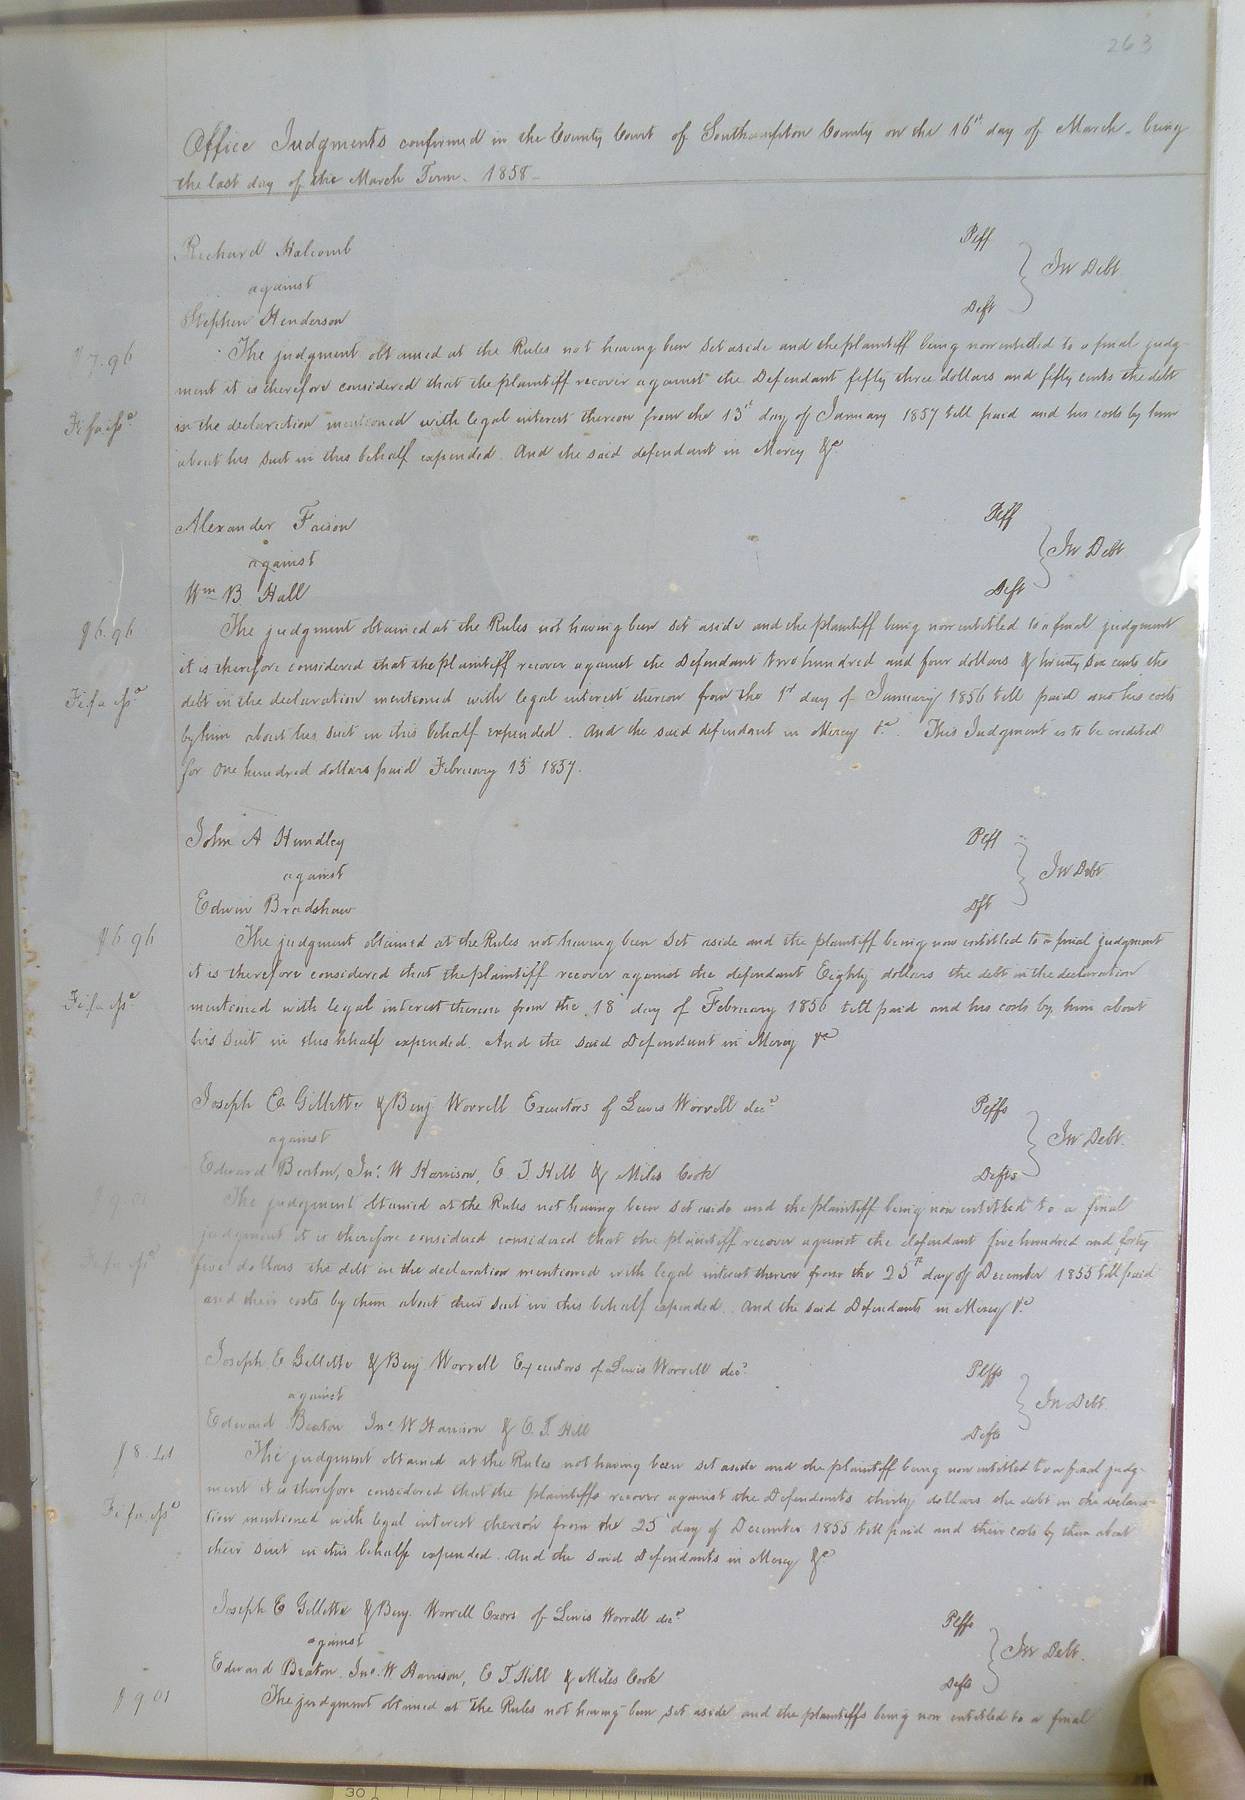 263
Office Judgments confirmed in the County Court of Southampton County on the 16th day of March, being
the last day of the March Term. 1858
Richard Halcomb Plff
against In Debt
Stephen Henderson Deft
The judgment obtained at the Rules not having been set aside and the plaintiff being now entitled to a final judg-
$7.96
ment it is therefore considered that the plaintiff recover against the Defendant fifty three dollars and fifty cents the debt
in the declaration mentioned with legal interest thereon from the 13th day of January 1857 till paid and his costs by him
Fi fa
about his suit in this behalf expended. And the said defendant in Mercy &c
Alexander Faison Plff
against In Debt
Wm B. Hall Deft
The judgment obtained at the Rules not having been set aside and the plaintiff being now entitled to a final judgment
$6.96
it is therefore considered that the plaintiff recover against the Defendant two hundred and four dollars & cents the
debt in the declaration mentioned with legal interest thereon from the 1st day of January 1856 till paid and his costs
Fi. fa
by him about his suit in this behalf expended. And the said defendant in Mercy &c. This Judgment is to be credited
for One hundred dollars paid February 13 1857.
John A Hundley Plff
against In Debt
Edwin Bradshaw Dft
The judgment obtained at the Rules not having been set aside and the plaintiff being now entitled to a final judgment
$6.96
it is therefore considered that the plaintiff recover against the defendant Eighty dollars the debt in the declaration
mentioned with legal interest thereon from the 18 day of February 1856 till paid and his costs by him about
Fi. fa
his suit in this behalf expended. And the said Defendant in Mercy &c
Joseph E. Gillette & Benj Worrell Executors of Lewis Worrell decd Plffs
against In Debt
Edward Beaton, Jno. W Harrison, E. T. Hill & Miles Cook Defts
The judgment obtained at the Rules not having been set aside and the plaintiff being now entitled to a final
$9.01
judgment it is therefore considered considered that the plaintiff recover against the defendant five hundred and forty
five dollars the debt in the declaration mentioned with legal interest thereon from the 25th day of December 1855 till paid
and their costs by them about their suit in this behalf expended. And the said Defendants in Mercy &c
Joseph E Gillette & Benj Worrell Executors of Lewis Worrell decd Plffs
against In Debt
Edward Beaton Jno. W Harrison & E. T. Hill Defts
The judgment obtained at the Rules not having been set aside and the plaintiff being now entitled to a final judg-
$8.41
ment it is therefore considered that the plaintiffs recover against the Defendants thirty dollars the debt in the declara-
tion mentioned with legal interest thereon from the 25 day of December 1855 till paid and their costs by them about
Fi. fa
their suit in this behalf expended. And the said Defendants in Mercy &c
Joseph E Gillette & Benj. Worrell Exors of Lewis Worrell decd Plffs
against In Debt.
Edward Beaton. Jno. W Harrison, E T Hill & Miles Cook Defts
The judgment obtained at the Rules not having been set aside and the plaintiffs being now entitled to a final
$9 01
30